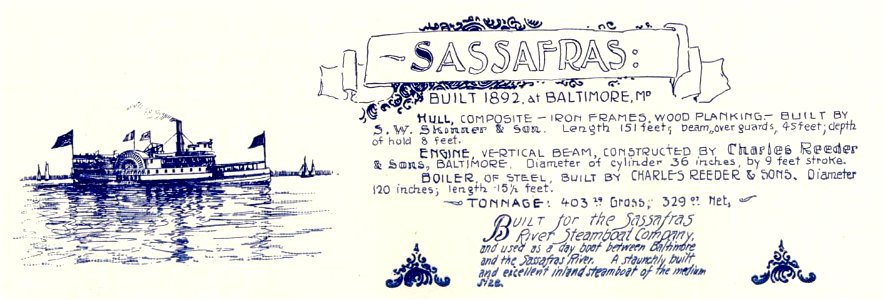 SASSAFRAS:
BUILT 1892, at BALTIMORE, MD
HULL, COMPOSITE – IRON FRAMES, WOOD PLANKING – BUILT BY
S. W. Skinner & Son. Length 151 feet; beam, over guards, 45 feet; depth
of hold 8 feet.
ENGINE, VERTICAL BEAM, CONSTRUCTED BY Charles Reeder
& Sons, BALTIMORE. Diameter of cylinder 36 inches, by 9 feet stroke.
BOILER, OF STEEL, BUILT BY CHARLES REEDER & SONS. Diameter
120 inches; length 15½ feet.
TONNAGE: 403 Gross; 329 Net,
BUILT for the Sassafras
River Steamboat Company,
and used as a day boat between Baltimore
and the Sassafras River. A staunchly built
and excellent inland steamboat of the medium
size.